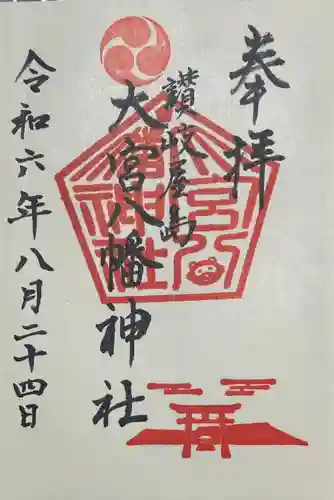 奉拝
讃岐廣島
大宮八幡神社
令和六年八月二十四日